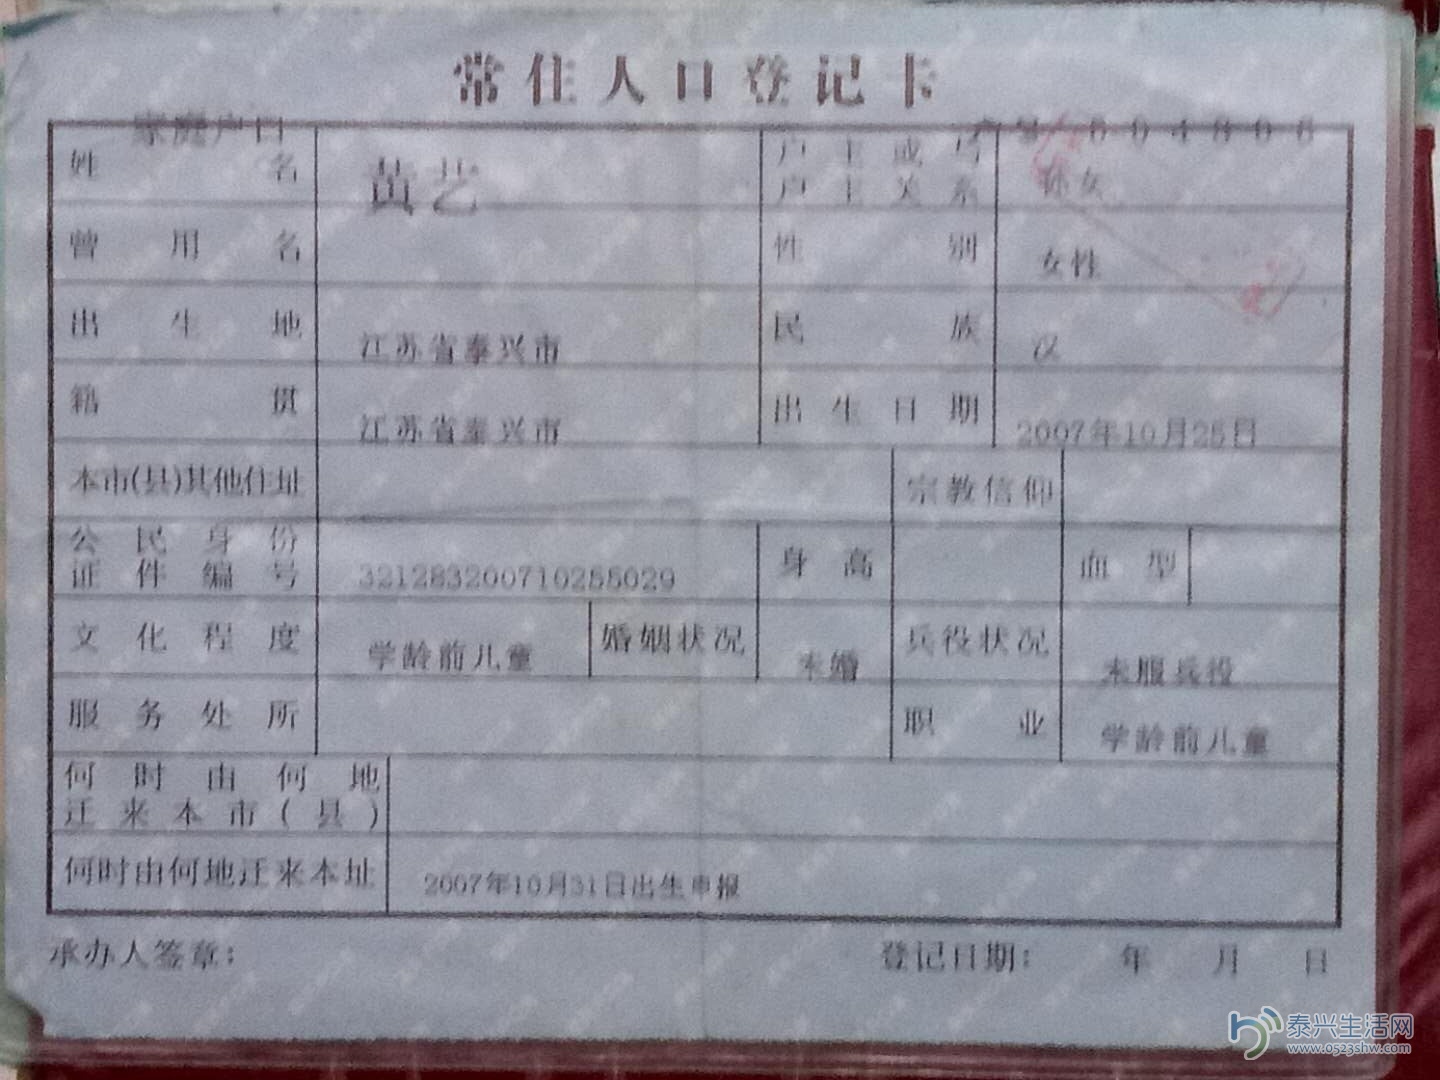 常住人口登记卡
家庭户口
姓名 黄艺 户主或与户主关系 孙女
曾用名 性别 女性
出生地 江苏省泰兴市 民族 汉
籍贯 江苏省泰兴市 出生日期 2007年10月25日
本市(县)其他住址 宗教信仰
公民身份证件编号 321283200710255029 身高 血型
文化程度 学龄前儿童 婚姻状况 未婚 兵役状况 未服兵役
服务处所 职业 学龄前儿童
何时由何地迁来本市(县)
何时由何地迁来本址 2007年10月31日出生申报
承办人签章: 登记日期: 年 月 日
泰兴生活网
www.0523shw.com